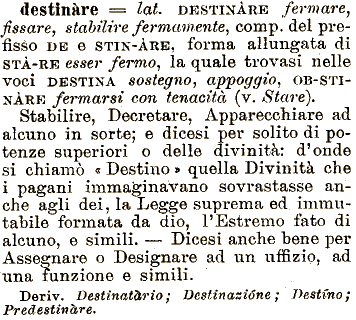 destinàre = lat. DESTINÀRE fermare,
fissare, stabilire fermamente, comp. del pre-
fisso DE e STIN-ÀRE, forma allungata di
STÀ-RE esser fermo, la quale trovasi nelle
voci DESTINA sostegno, appoggio, OB-STI-
NÀRE fermarsi con tenacità (v. Stare).
Stabilire, Decretare, Apparecchiare ad
alcuno in sorte; e dicesi per solito di po-
tenze superiori o delle divinità: d'onde
si chiamò « Destino » quella Divinità che
i pagani immaginavano sovrastasse an-
che agli dei, la Legge suprema ed immu-
tabile formata da dio, l'Estremo fato di
alcuno, e simili. — Dicesi anche bene per
Assegnare o Designare ad un uffizio, ad
una funzione e simili.
Deriv. Destinatàrio; Destinazióne; Destíno;
Predestinàre.